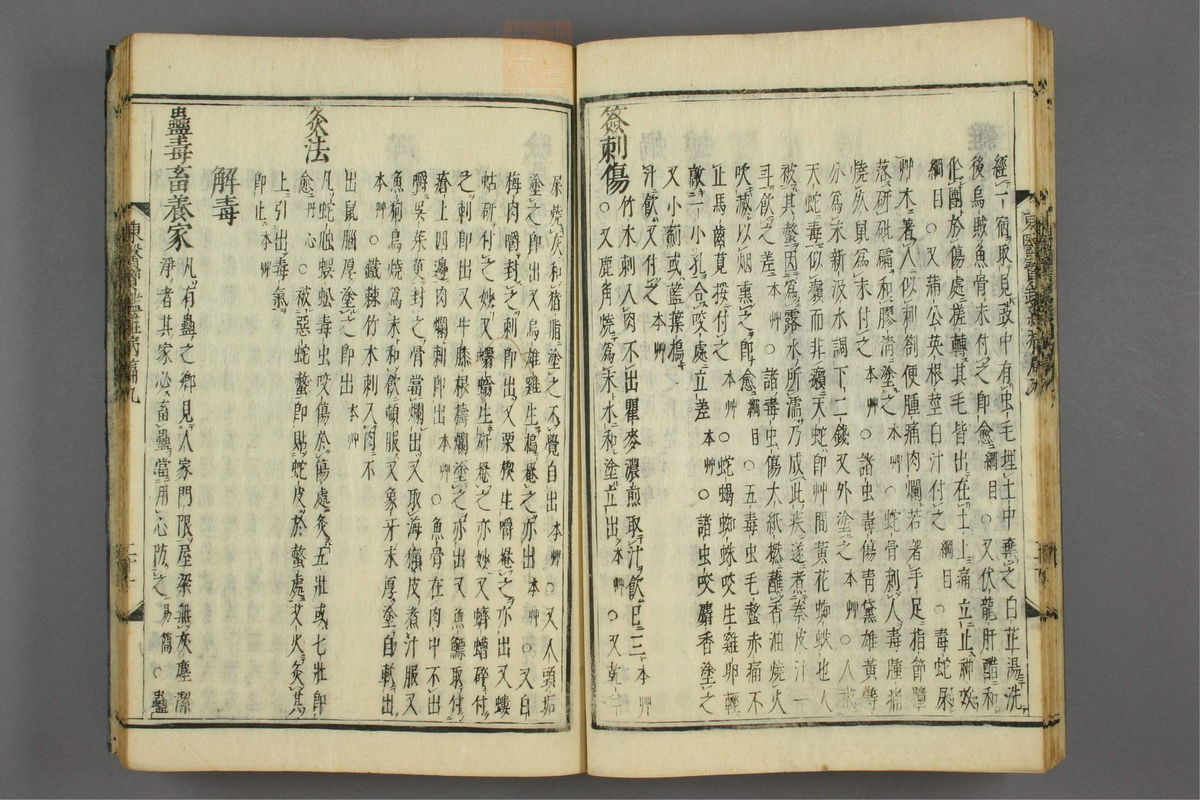 經一宿取見豉中有虫毛埋土中棄之白芷湯洗
後烏賊魚骨末付之即愈綱目○又伏龍肝醋和
作團於傷處搓轉其毛皆出在土上痛立止神妙
綱目○又蒲公英根莖白汁付之綱目○毒蛇尿
艸木著人似刺刮便腫痛肉爛若著手足指節墮
落研砒霜和膠清塗之本艸○蛇骨刺人毒腫痛
燒死鼠爲末付之本艸○諸虫毒傷靑黛雄黃等
分爲末新汲水調下二錢又外塗之本艸○人被
天蛇毒似癩而非癩天蛇即艸間黃花蜘蛛也人
被其螫因爲露水所濡乃成此疾遂煮秦皮汁一
斗飮之差本艸○諸毒虫傷大紙撚蘸香油燒火
吹滅以烟熏之即愈綱目○五毒虫毛螫赤痛不
止馬齒莧挼付之本艸○蛇蝎蜘蛛咬生雞卵輕
敲一小孔合咬處立差本艸○諸虫咬麝香塗之
又小薊或藍葉搗
汁飮又付之本艸
簽刺傷 竹木刺入肉不出瞿麥濃煎取汁飮日三本艸
○又鹿角燒爲末水和塗立出本艸○又乾羊
屎燒灰和猪脂塗之不覺自出本艸○又人頭垢
塗之即出又烏雄雞生搗罨之亦出本艸○又白
梅肉嚼封之刺即出又栗楔生嚼罨之亦出又螻
蛄硏付之妙又蝸蝓生硏罨之亦妙又蠐螬碎付
之刺即出又牛膝根擣爛塗之亦出又魚鰾取付
瘡上四邊肉爛刺即出本艸○魚骨在肉中不出
嚼吳茱萸封之骨當爛出又取海獺皮煮汁服又
魚狗鳥燒爲末和飮頓服又象牙末厚塗自軟出
本艸○鐵棘竹木刺入肉不
出鼠腦厚塗之即出本艸
灸法 凡蛇虺蜈蚣毒虫咬傷於傷處灸五壯或七壯即
愈丹心○被惡蛇螫即貼蛇皮於螫處艾火灸其
上引出毒氣
即止本艸
解毒
蠱毒畜養家 凡有蠱之鄕見人家門限屋梁無灰塵潔
淨者其家必畜蠱當用心防之易簡○蠱